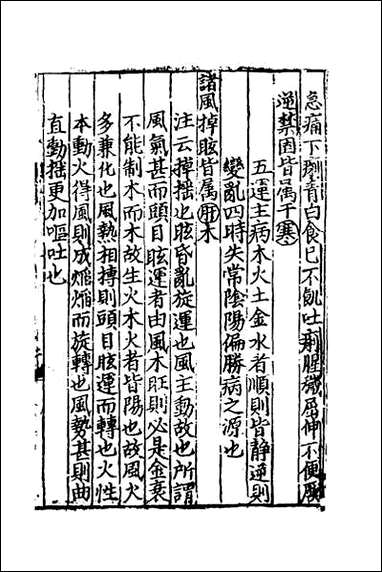 急痛下利青白食已不飢吐痢腥穢屈伸不便厥
逆禁固皆属于寒
五運主病木火土金水者順則皆静逆則
變亂四時失常陰陽偏勝病之源也
諸風掉眩皆属肝木
注云掉揺也眩昏亂旋運也風主動故也所謂
風氣甚而頭目眩運者由風木旺則必是金衰
不能制木而木故生火木火者皆陽也故風火
多兼化也風熱相搏則頭目眩運而轉也火性
本動火得風則成焰焰而旋轉也風勢甚則曲
直動揺更加嘔吐也